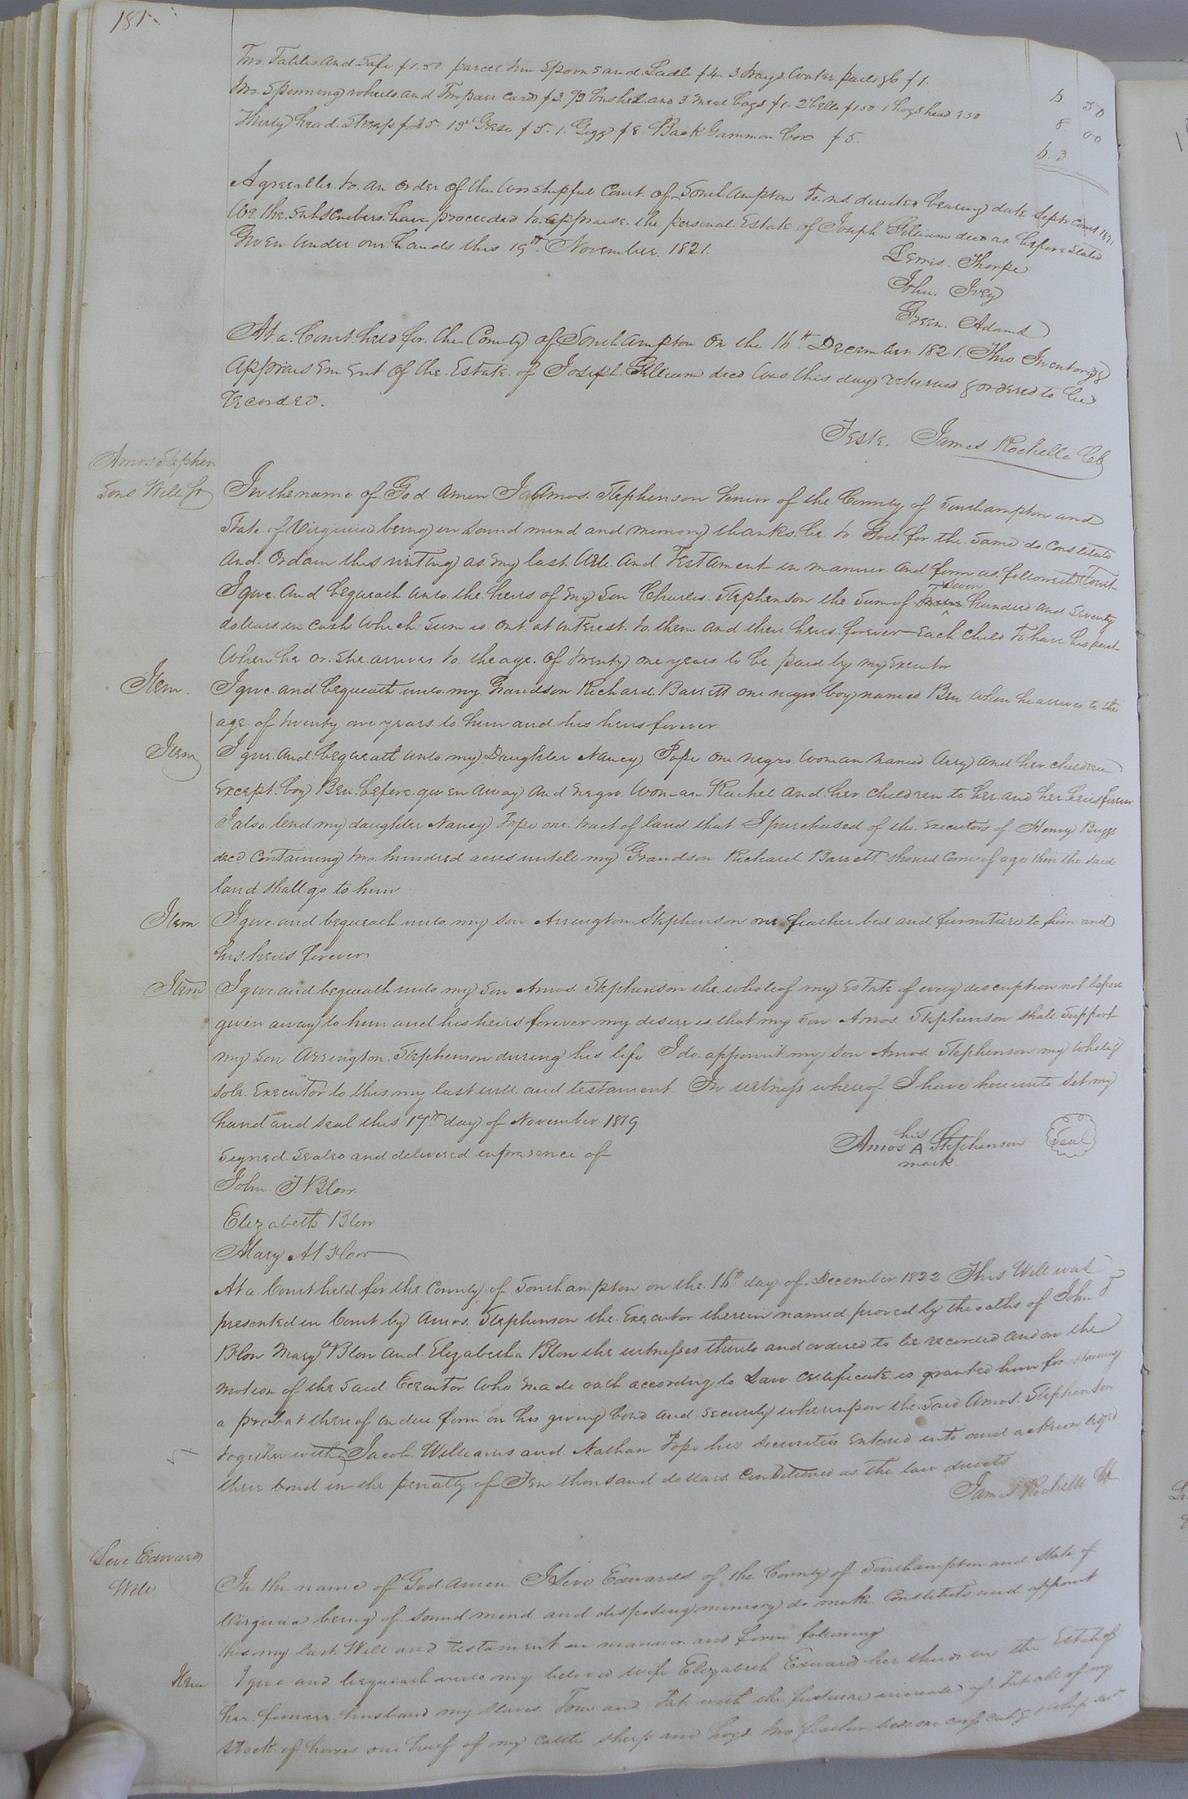 181
Two Tables and Safe $1.50 parcel tin Spoons and Ladle $4. 3 trays water pails &c $1.
6 50
Two Spinning wheels and Two pair cards $3 1/2 bushel and 3 meal bags $1. 2 bells $1.50 1 hogshead 2.50
8. 00
Thirty head Sheep $25. 15 Geese $5. 1. Gigg $8 Back Gammon box $5.
63
Agreeable to an order of the worshipful Court of Southampton to us directed bearing date Septr Court 1821
We the Subscribers have proceeded to appraise the personal Estate of Joseph Gilliam decd as before Stated
Given under our hands this 19th November 1821.
Lewis Thorpe
John. Ivey
Green. Adams
At a Court held for the County of Southampton on the 16th December 1821. This Inventory &
appraisement of the Estate of Joseph Gilliam decd was this day returned & ordered to be
recorded.
Teste. James Rochelle Clk
Amos Stephen
sons Will &c
In the name of God Amen I Amos Stephenson Senior of the County of Southampton and
State of Virginia being in sound mind and memory thanks be to God for the same do Constitute
And Ordain this writing as my last Will And Testament in manner and form as followeth Towit
I give And bequeath unto the heirs of my Son Charles Stephenson the Sum of seven hundred and seventy
dollars in cash which sum is out at interest to them and their heirs forever Each child to have his part
When he or she arrives to the age of twenty one years to be paid by my Executor
Item. I give and bequeath unto my Grandson Richard Barrett one negro boy named Ben when he arrives to the
age of twenty one years to him and his heirs forever
Item I give And bequeath unto my Daughter Nancy Pope one negro woman named Amy and her children
Except boy Ben before given away And negro woman Rachel and her children to her and her heirs forever
I also lend my daughter Nancy Pope one tract of land that I purchased of the executors of Henry Briggs
decd Containing two hundred acres untill my Grandson Richard Barrett should come of age then the said
land shall go to him
Item I give and bequeath unto my son Arrington Stephenson one feather bed and furniture to him and
his heirs forever
Item I give and bequeath unto my son Amos Stephenson the whole of my Estate of every description not before
given away to him and his heirs forever my desire is that my son Amos Stephenson shall support
my son Arrington Stephenson during his life I do appoint my son Amos Stephenson my whole &
sole Executor to this my last will and testament In witness whereof I have hereunto set my
hand and seal this 17th day of November 1819
his
Amos A Stephenson Seal
mark
Signed Sealed and delivered in presence of
John T Blow
Elizabeth Blow
Mary A Blow
At a Court held for the County of Southampton on the 16th day of December 1822 This Will was
presented in Court by Amos Stephenson the Executor therein named proved by the oaths of John T
Blow Mary A Blow and Elizabeth Blow the witnesses thereto and ordered to be recorded and on the
motion of the said Executor who made oath according to Law certificate is granted him for obtaining
a probat thereof in due form on his giving bond and security whereupon the said Amos Stephenson
together with Jacob Williams and Nathan Pope his securities entered into and acknowledged
their bond in the penalty of Ten thousand dollars Conditioned as the law directs
James Rochelle Clk
Levi Edwards
Will
In the name of God Amen I Levi Edwards of the County of Southampton and State of
Virginia being of sound mind and disposing memory do make Constitute and appoint
this my last Will and Testament in manner and form following
Item I give and bequeath unto my beloved wife Elizabeth Edwards her thirds in the Estate of
her former husband my slaves Tom and Pat with the future increase of Pat all of my
stock of horses one half of my cattle sheep and hogs two feather beds one